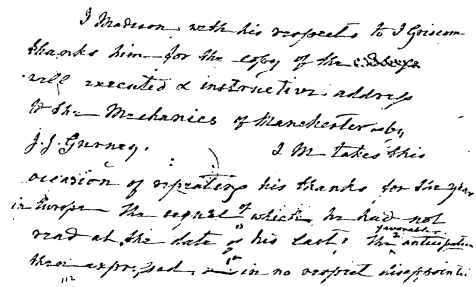 J Madison, with his respects to J Griscom
thanks him for the copy of the
well executed & instructive address
to the Mechanics of Manchester by
J. J. Gurney. J. M takes this
occasion of repeating his thanks for the year
in Europe the sequel of which he had not
read at the date of his last: The favorable anticipation
then expressed, in no respect disappoint: